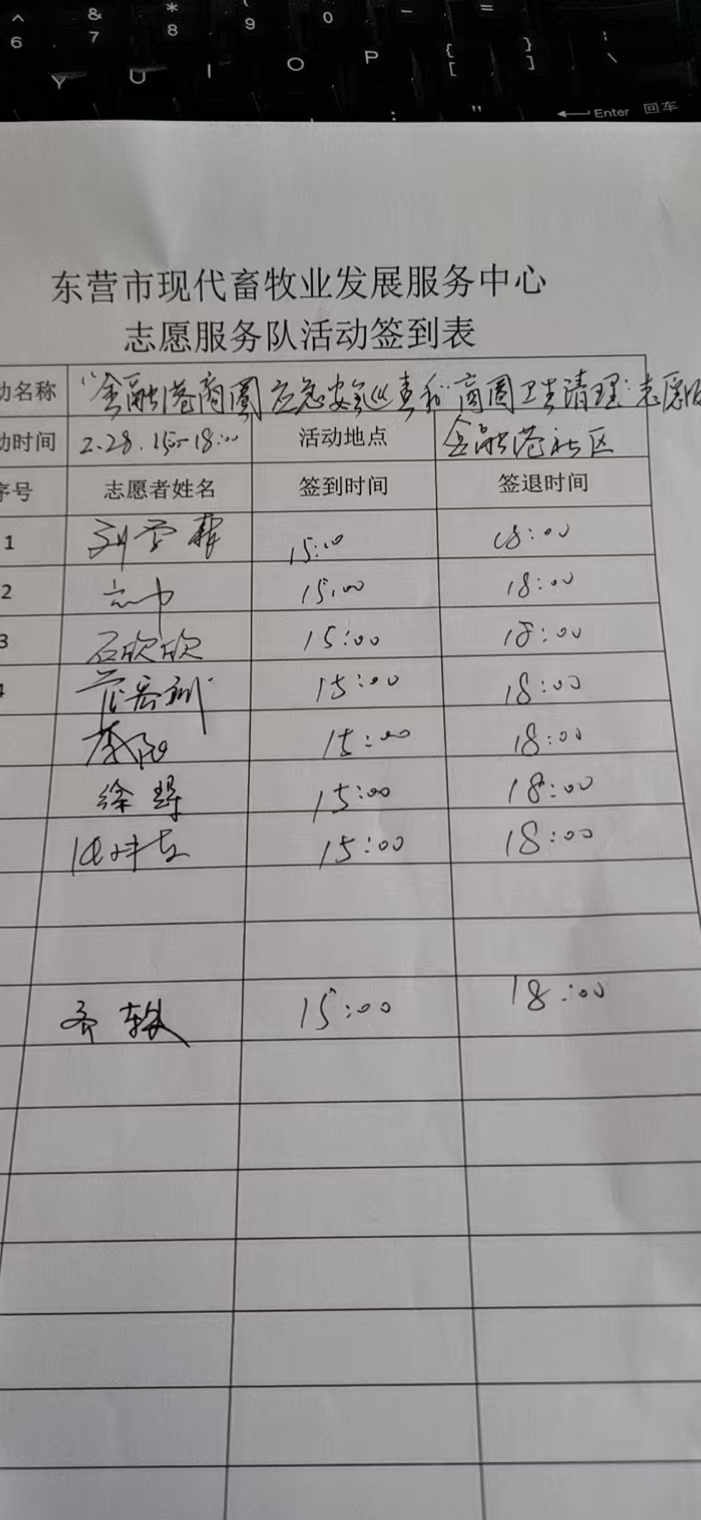 ^ & * ( - =
6 7 8 9 0
Y U I O P { [ } ] : \
: " Enter 回车
东营市现代畜牧业发展服务中心
志愿服务队活动签到表
动名称 "金融港商圈应急安全巡查和商圈卫生清理"志愿服
动时间 2.28.15:00-18:00 活动地点 金融港社区
序号 志愿者姓名 签到时间 签退时间
1 15:00 18:00
2 15:00 18:00
3 石欣欣 15:00 18:00
4 15:00 18:00
15:00 18:00
徐 15:00 18:00
15:00 18:00
齐 15:00 18:00